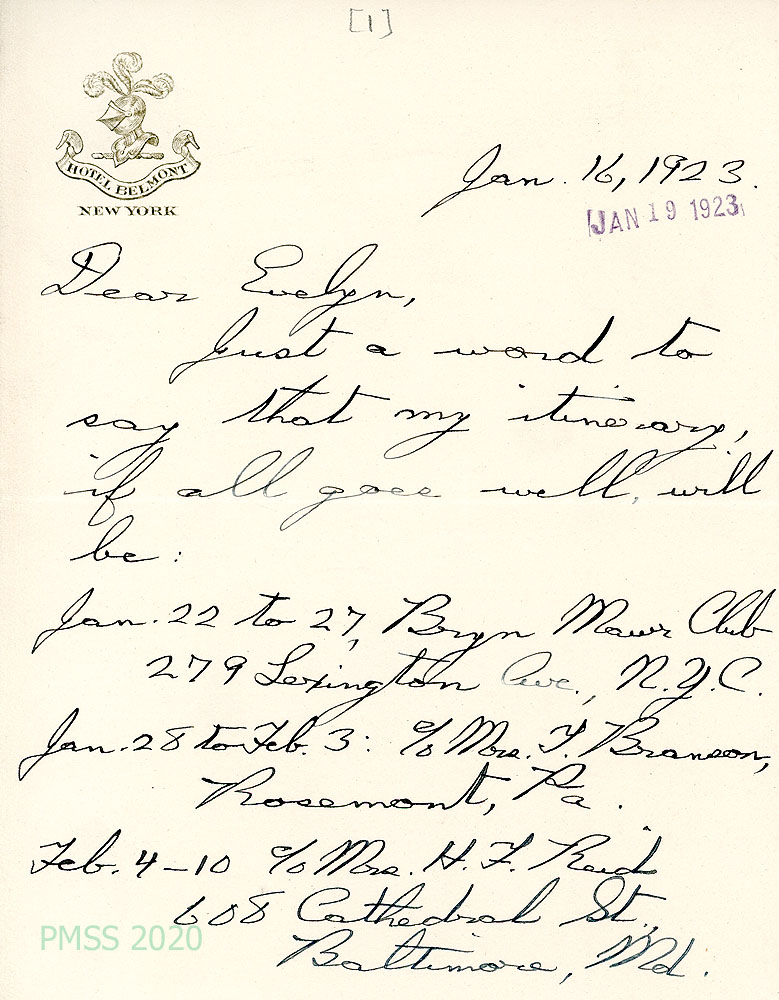 [1]
HOTEL BELMONT
NEW YORK
Jan. 16, 1923.
JAN 19 1923
Dear Evelyn,
Just a word to
say that my itinerary,
if all goes well, will
be:
Jan. 22 to 27, Bryn Mawr Club
279 Lexington Ave., N.Y.C.
Jan. 28 to Feb. 3: c/o Mrs. T. Branson,
Rosemont, Pa.
Feb. 4-10 c/o Mrs. H. F. Reid
608 Cathedral St.,
Baltimore, Md.
PMSS 2020